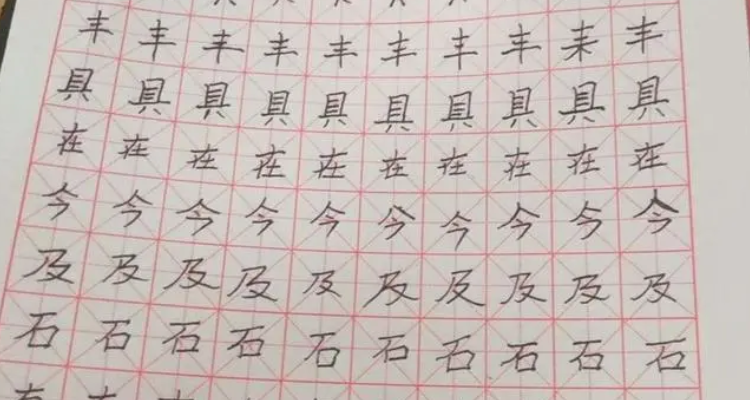 丰丰丰丰丰丰丰丰耒丰
具具具具具具具具具具
在在在在在在在在在在
今今今今今今今今今今
及及及及及及及及及及
石石石石石石石石石石